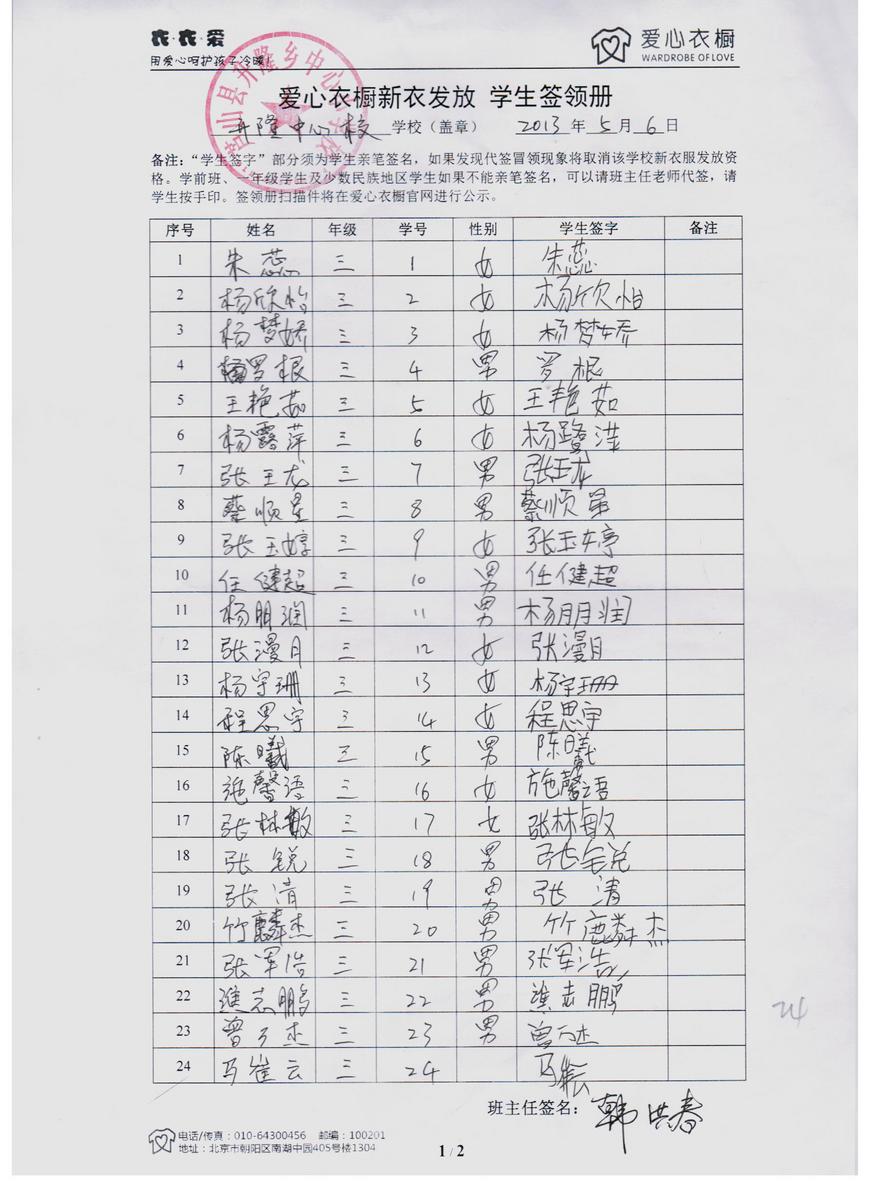 衣·衣·爱
用爱心呵护孩子冷暖!
爱心衣橱
WARDROBE OF LOVE
爱心衣橱新衣发放 学生签领册
升隆中心校 学校（盖章） 2013 年 5 月 6 日
备注：“学生签字”部分须为学生亲笔签名，如果发现代签冒领现象将取消该学校新衣服发放资
格。学前班、一年级学生及少数民族地区学生如果不能亲笔签名，可以请班主任老师代签，请
学生按手印。签领册扫描件将在爱心衣橱官网进行公示。
序号 姓名 年级 学号 性别 学生签字 备注
1 朱蕊 三 1 女 朱蕊
2 杨欣怡 三 2 女 杨欣怡
3 杨梦娇 三 3 女 杨梦娇
4 罗根 三 4 男 罗根
5 王艳茹 三 5 女 王艳茹
6 杨露萍 三 6 女 杨露萍
7 张王龙 三 7 男 张王龙
8 蔡顺星 三 8 男 蔡顺星
9 张玉婷 三 9 女 张玉婷
10 任健超 三 10 男 任健超
11 杨朋润 三 11 男 杨朋润
12 张漫月 三 12 女 张漫月
13 杨宇珊 三 13 女 杨宇珊
14 程思宇 三 14 女 程思宇
15 陈曦 三 15 男 陈曦
16 施馨语 三 16 女 施馨语
17 张林敏 三 17 女 张林敏
18 张锐 三 18 男 张锐
19 张清 三 19 男 张清
20 竹麟杰 三 20 男 竹麟杰
21 张军浩 三 21 男 张军浩
22 志鹏 三 22 男 志鹏
23 曾杰 三 23 男 曾杰
24 马云 三 24 马
24
班主任签名：韩洪春
电话/传真：010-64300456 邮编：100201
地址：北京市朝阳区南湖中园405号楼1304
1 / 2